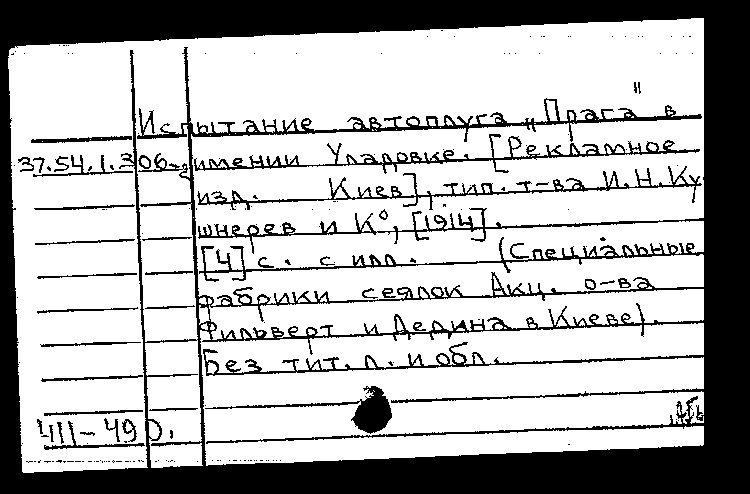 Испытание автоплуга „Прага" в
37.54.1.306-2 имении Уладовке. [Рекламное
изд. Киев], тип. т-ва И.Н.Ку
шнерев и К⁰, [1914].
[4] с. с илл. (Специальные
фабрики сеялок Акц. о-ва
Фильверт и Дедина в Киеве).
Без тит. л. и обл.
411-490.